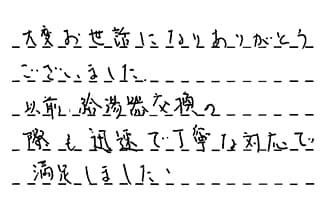 大変お世話になりありがとう
ございました.
以前、給湯器交換の
際も迅速で丁寧な対応で
満足しました、